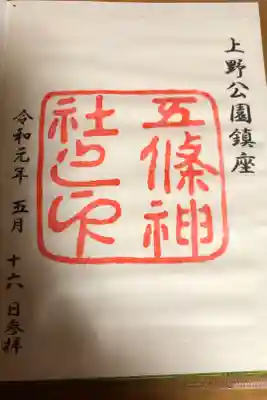 上野公園鎮座
五條神
社之印
令和元年 五月 十六 日参拝